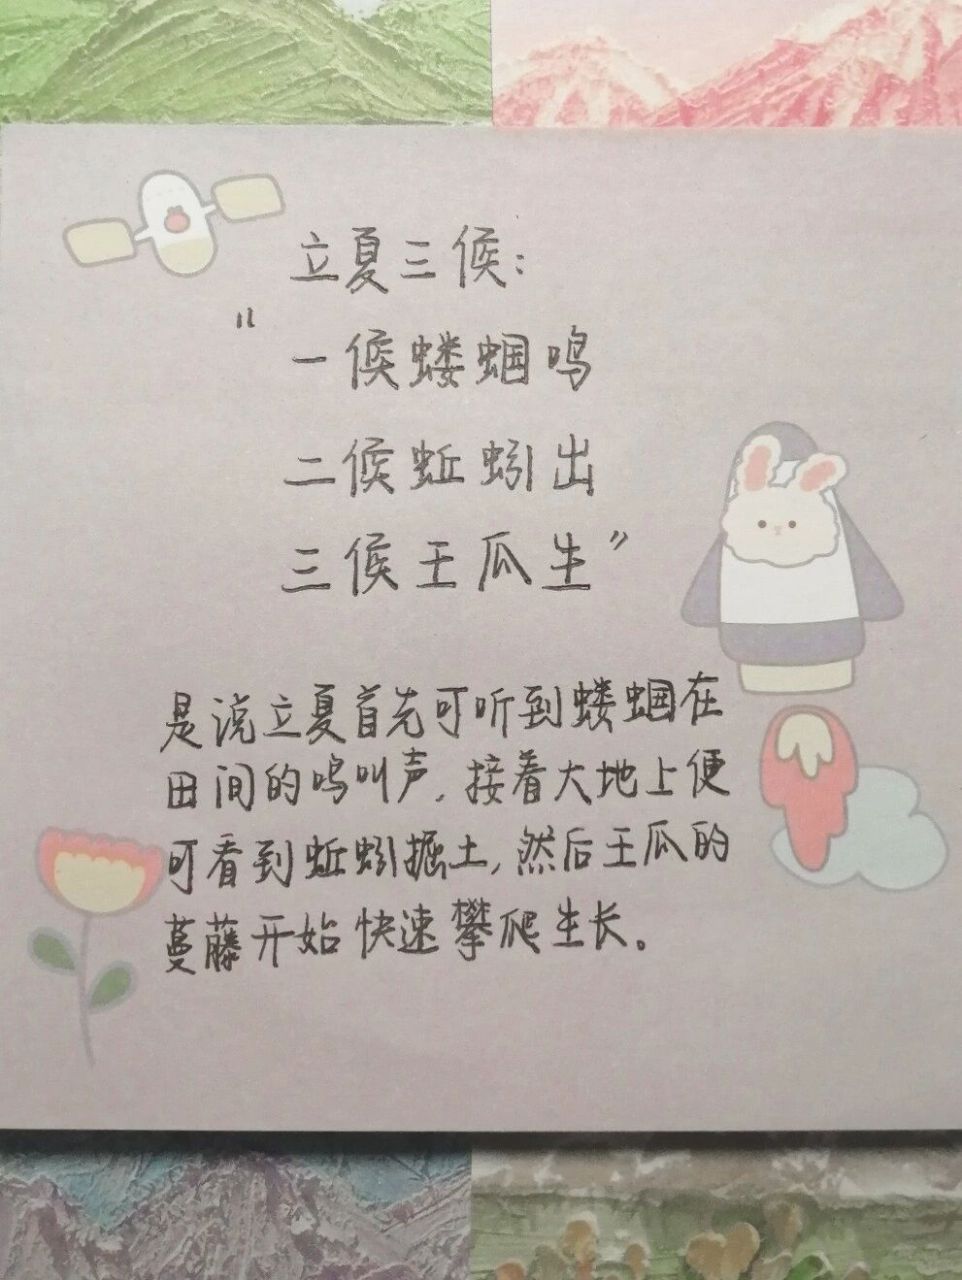 立夏三候：
“一候蝼蝈鸣
二候蚯蚓出
三候王瓜生”
是说立夏首先可听到蝼蝈在
田间的鸣叫声，接着大地上便
可看到蚯蚓掘土，然后王瓜的
蔓藤开始快速攀爬生长。